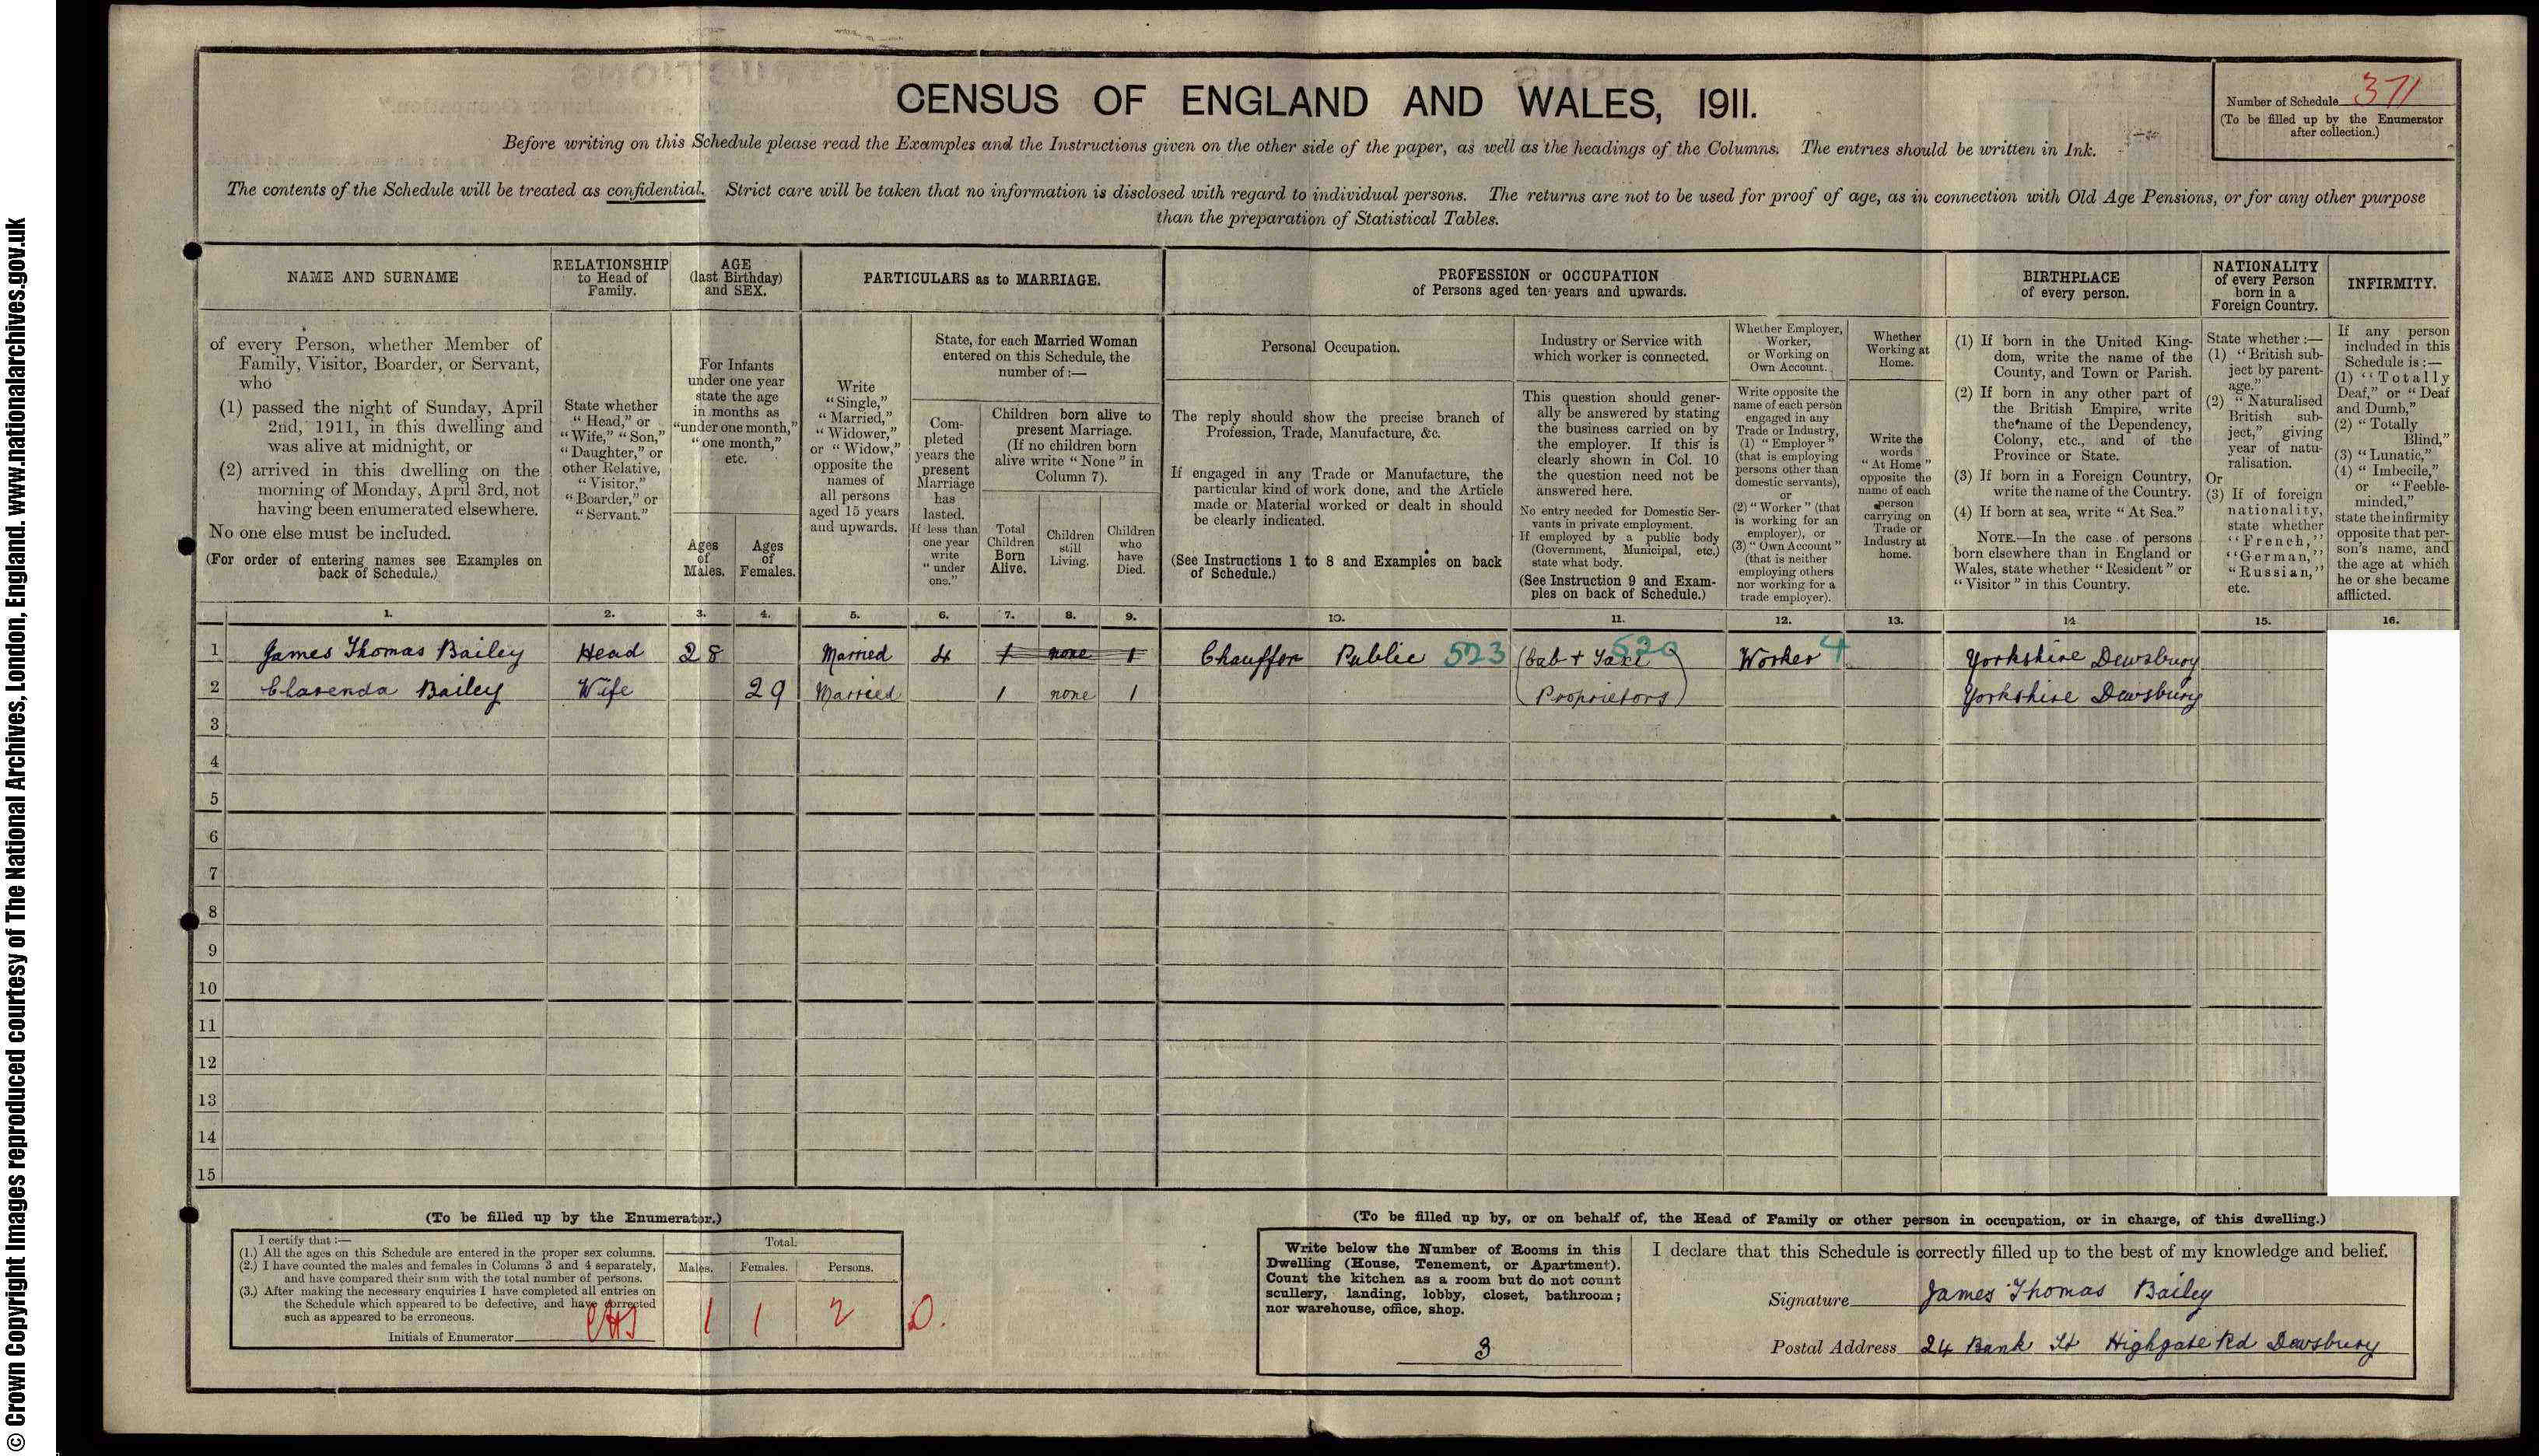 CENSUS OF ENGLAND AND WALES, 1911.
Number of Schedule 371
(To be filled up by the Enumerator
after collection.)
Before writing on this Schedule please read the Examples and the Instructions given on the other side of the paper, as well as the headings of the Columns. The entries should be written in Ink.
The contents of the Schedule will be treated as confidential. Strict care will be taken that no information is disclosed with regard to individual persons. The returns are not to be used for proof of age, as in connection with Old Age Pensions, or for any other purpose
than the preparation of Statistical Tables.
NAME AND SURNAME
of every Person, whether Member of
Family, Visitor, Boarder, or Servant,
who
(1) passed the night of Sunday, April
2nd, 1911, in this dwelling and
was alive at midnight, or
(2) arrived in this dwelling on the
morning of Monday, April 3rd, not
having been enumerated elsewhere.
No one else must be included.
(For order of entering names see Examples on
back of Schedule.)
RELATIONSHIP
to Head of
Family.
State whether
"Head," or
"Wife," "Son,"
"Daughter," or
other Relative,
"Visitor,"
"Boarder," or
"Servant."
AGE
(last Birthday)
and SEX.
For Infants
under one year
state the age
in months as
"under one month,"
"one month,"
etc.
Ages
of
Males.
Ages
of
Females.
PARTICULARS as to MARRIAGE.
Write
"Single,"
"Married,"
"Widower,"
or "Widow,"
opposite the
names of
all persons
aged 15 years
and upwards.
State, for each Married Woman
entered on this Schedule, the
number of:—
Com-
pleted
years the
present
Marriage
has
lasted.
If less than
one year
write
"under
one."
Children born alive to
present Marriage.
(If no children born
alive write "None" in
Column 7).
Total
Children
Born
Alive.
Children
still
Living.
Children
who
have
Died.
PROFESSION or OCCUPATION
of Persons aged ten years and upwards.
Personal Occupation.
The reply should show the precise branch of
Profession, Trade, Manufacture, &c.
If engaged in any Trade or Manufacture, the
particular kind of work done, and the Article
made or Material worked or dealt in should
be clearly indicated.
(See Instructions 1 to 8 and Examples on back
of Schedule.)
Industry or Service with
which worker is connected.
This question should gener-
ally be answered by stating
the business carried on by
the employer. If this is
clearly shown in Col. 10
the question need not be
answered here.
No entry needed for Domestic Ser-
vants in private employment.
If employed by a public body
(Government, Municipal, etc.)
state what body.
(See Instruction 9 and Exam-
ples on back of Schedule.)
Whether Employer,
Worker,
or Working on
Own Account.
Write opposite the
name of each person
engaged in any
Trade or Industry,
(1) "Employer"
(that is employing
persons other than
domestic servants),
or
(2) "Worker" (that
is working for an
employer), or
(3) "Own Account"
(that is neither
employing others
nor working for a
trade employer).
Whether
Working at
Home.
Write the
words
"At Home"
opposite the
name of each
person
carrying on
Trade or
Industry at
home.
BIRTHPLACE
of every person.
(1) If born in the United King-
dom, write the name of the
County, and Town or Parish.
(2) If born in any other part of
the British Empire, write
the name of the Dependency,
Colony, etc., and of the
Province or State.
(3) If born in a Foreign Country,
write the name of the Country.
(4) If born at sea, write "At Sea."
NOTE.—In the case of persons
born elsewhere than in England or
Wales, state whether "Resident" or
"Visitor" in this Country.
NATIONALITY
of every Person
born in a
Foreign Country.
State whether :—
(1) "British sub-
ject by parent-
age."
(2) "Naturalised
British sub-
ject," giving
year of natu-
ralisation.
Or
(3) If of foreign
nationality,
state whether
"French,"
"German,"
"Russian,"
etc.
INFIRMITY.
If any person
included in this
Schedule is :—
(1) "Totally
Deaf," or "Deaf
and Dumb,"
(2) "Totally
Blind,"
(3) "Lunatic,"
(4) "Imbecile,"
or "Feeble-
minded,"
state the infirmity
opposite that per-
son's name, and
the age at which
he or she became
afflicted.
1. 2. 3. 4. 5. 6. 7. 8. 9. 10. 11. 12. 13. 14 15. 16.
1 James Thomas Bailey Head 28 Married 4 1 none 1 Chauffer Public 523 (Cab + Taxi 520 Worker 4 Yorkshire Dewsbury
2 Clarenda Bailey Wife 29 Married 1 none 1 Proprietors) Yorkshire Dewsbury
3
4
5
6
7
8
9
10
11
12
13
14
15
(To be filled up by the Enumerator.)
I certify that :—
(1.) All the ages on this Schedule are entered in the proper sex columns.
(2.) I have counted the males and females in Columns 3 and 4 separately,
and have compared their sum with the total number of persons.
(3.) After making the necessary enquiries I have completed all entries on
the Schedule which appeared to be defective, and have corrected
such as appeared to be erroneous.
Initials of Enumerator
Total.
Males. Females. Persons.
1 1 2 D.
(To be filled up by, or on behalf of, the Head of Family or other person in occupation, or in charge, of this dwelling.)
Write below the Number of Rooms in this
Dwelling (House, Tenement, or Apartment).
Count the kitchen as a room but do not count
scullery, landing, lobby, closet, bathroom;
nor warehouse, office, shop.
3
I declare that this Schedule is correctly filled up to the best of my knowledge and belief.
Signature James Thomas Bailey
Postal Address 24 Bank St Highgate Rd Dewsbury
© Crown Copyright Images reproduced courtesy of The National Archives, London, England. www.nationalarchives.gov.uk